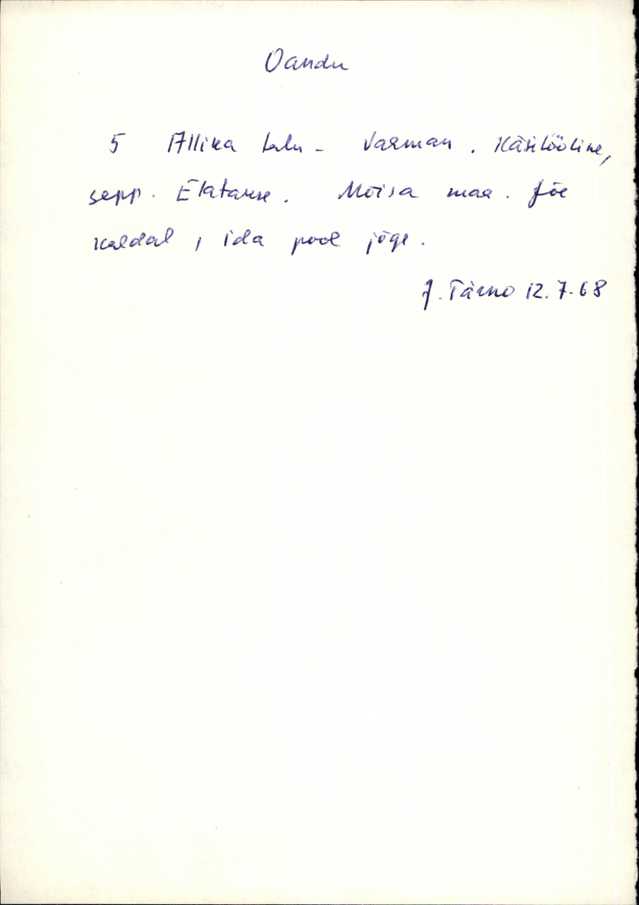 Oandu
5 Allika talu - Varman. Käsitööline,
sepp. Elatakse. Mõisa maa. Jõe
kaldal, ida pool jõge.
J. Tärno 12.7.68